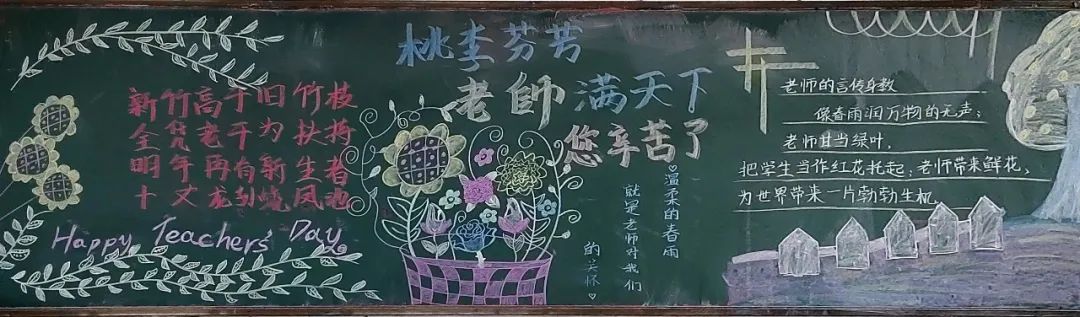 新竹高于旧竹枝
全凭老干为扶持
明年再有新生者
十丈龙孙绕凤池
Happy Teachers' Day
桃李芬芳
老師满天下
您辛苦了
温柔的春雨
就是老师对我们
的关怀
老师的言传身教
像春雨润万物的无声；
老师甘当绿叶，
把学生当作红花托起；老师带来鲜花，
为世界带来一片勃勃生机